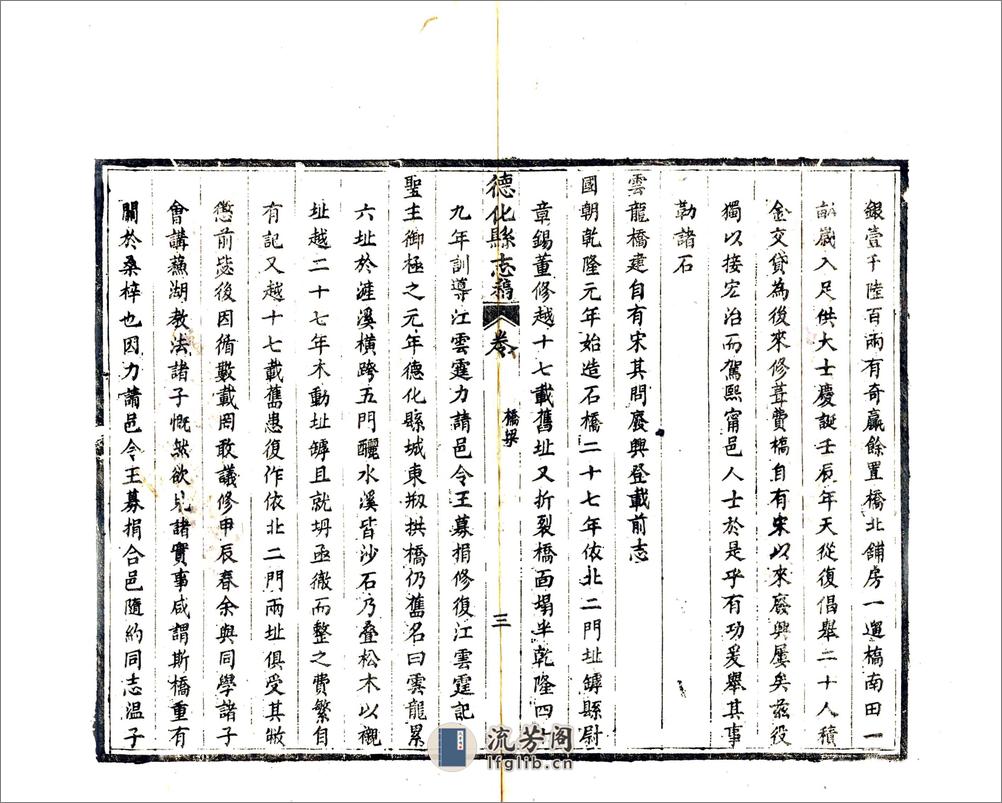 銀壹千陸百兩有奇贏餘置橋北舖房一運槁南田一
畝歲入足供大士慶誕壬辰年天從復倡舉二十人積
金交貸為後來修葺費槁自有宋以來廢興屢矣茲役
獨以接宏治而駕熙甯邑人士於是乎有功爰舉其事
勒諸石
雲龍橋建自有宋其問廢興登載前志
國朝乾隆元年始造石橋二十七年依北二門址罅縣尉
章錫董修越十七載舊址又折裂橋面塌半乾隆四十
德化縣志稿 卷 橋梁 三
九年訓導江雲霆力請邑令王募捐修復江雲霆記
聖主御極之元年德化縣城東剏拱橋仍舊名曰雲龍累
六址於滻溪橫跨五門釃水溪皆沙石乃叠松木以襯
址越二十七年木動址罅且就坍亟徹而整之費繁自
有記又越十七載舊患復作依北二門兩址俱受其敝
懲前毖後因循數載罔敢議修甲辰春余與同學諸子
會講蘓湖教法諸子慨然欲見諸實事咸謂斯橋重有
關於桑梓也因力請邑令王募捐合邑隨約同志溫子
流芳阁
lfglib.cn